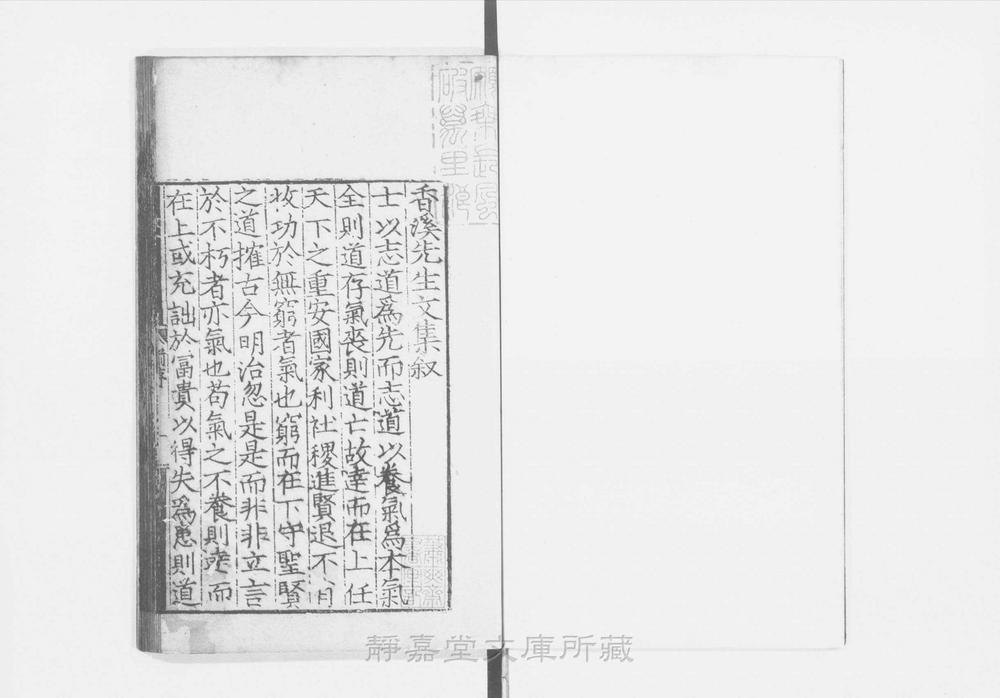 香溪先生文集叙
士以志道爲先而志道以養氣爲本氣
全則道存氣喪則道亡故達而在上任
天下之重安國家利社稷進賢退不肖
收功於無窮者氣也窮而在下守聖賢
之道搉古今明治忽是是而非非立言
於不朽者亦氣也苟氣之不養則達而
在上或充詘於富貴以得失爲患則道
靜嘉堂文庫所藏